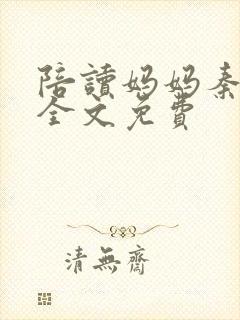 陪讀媽媽秦
全文免費
清無齋